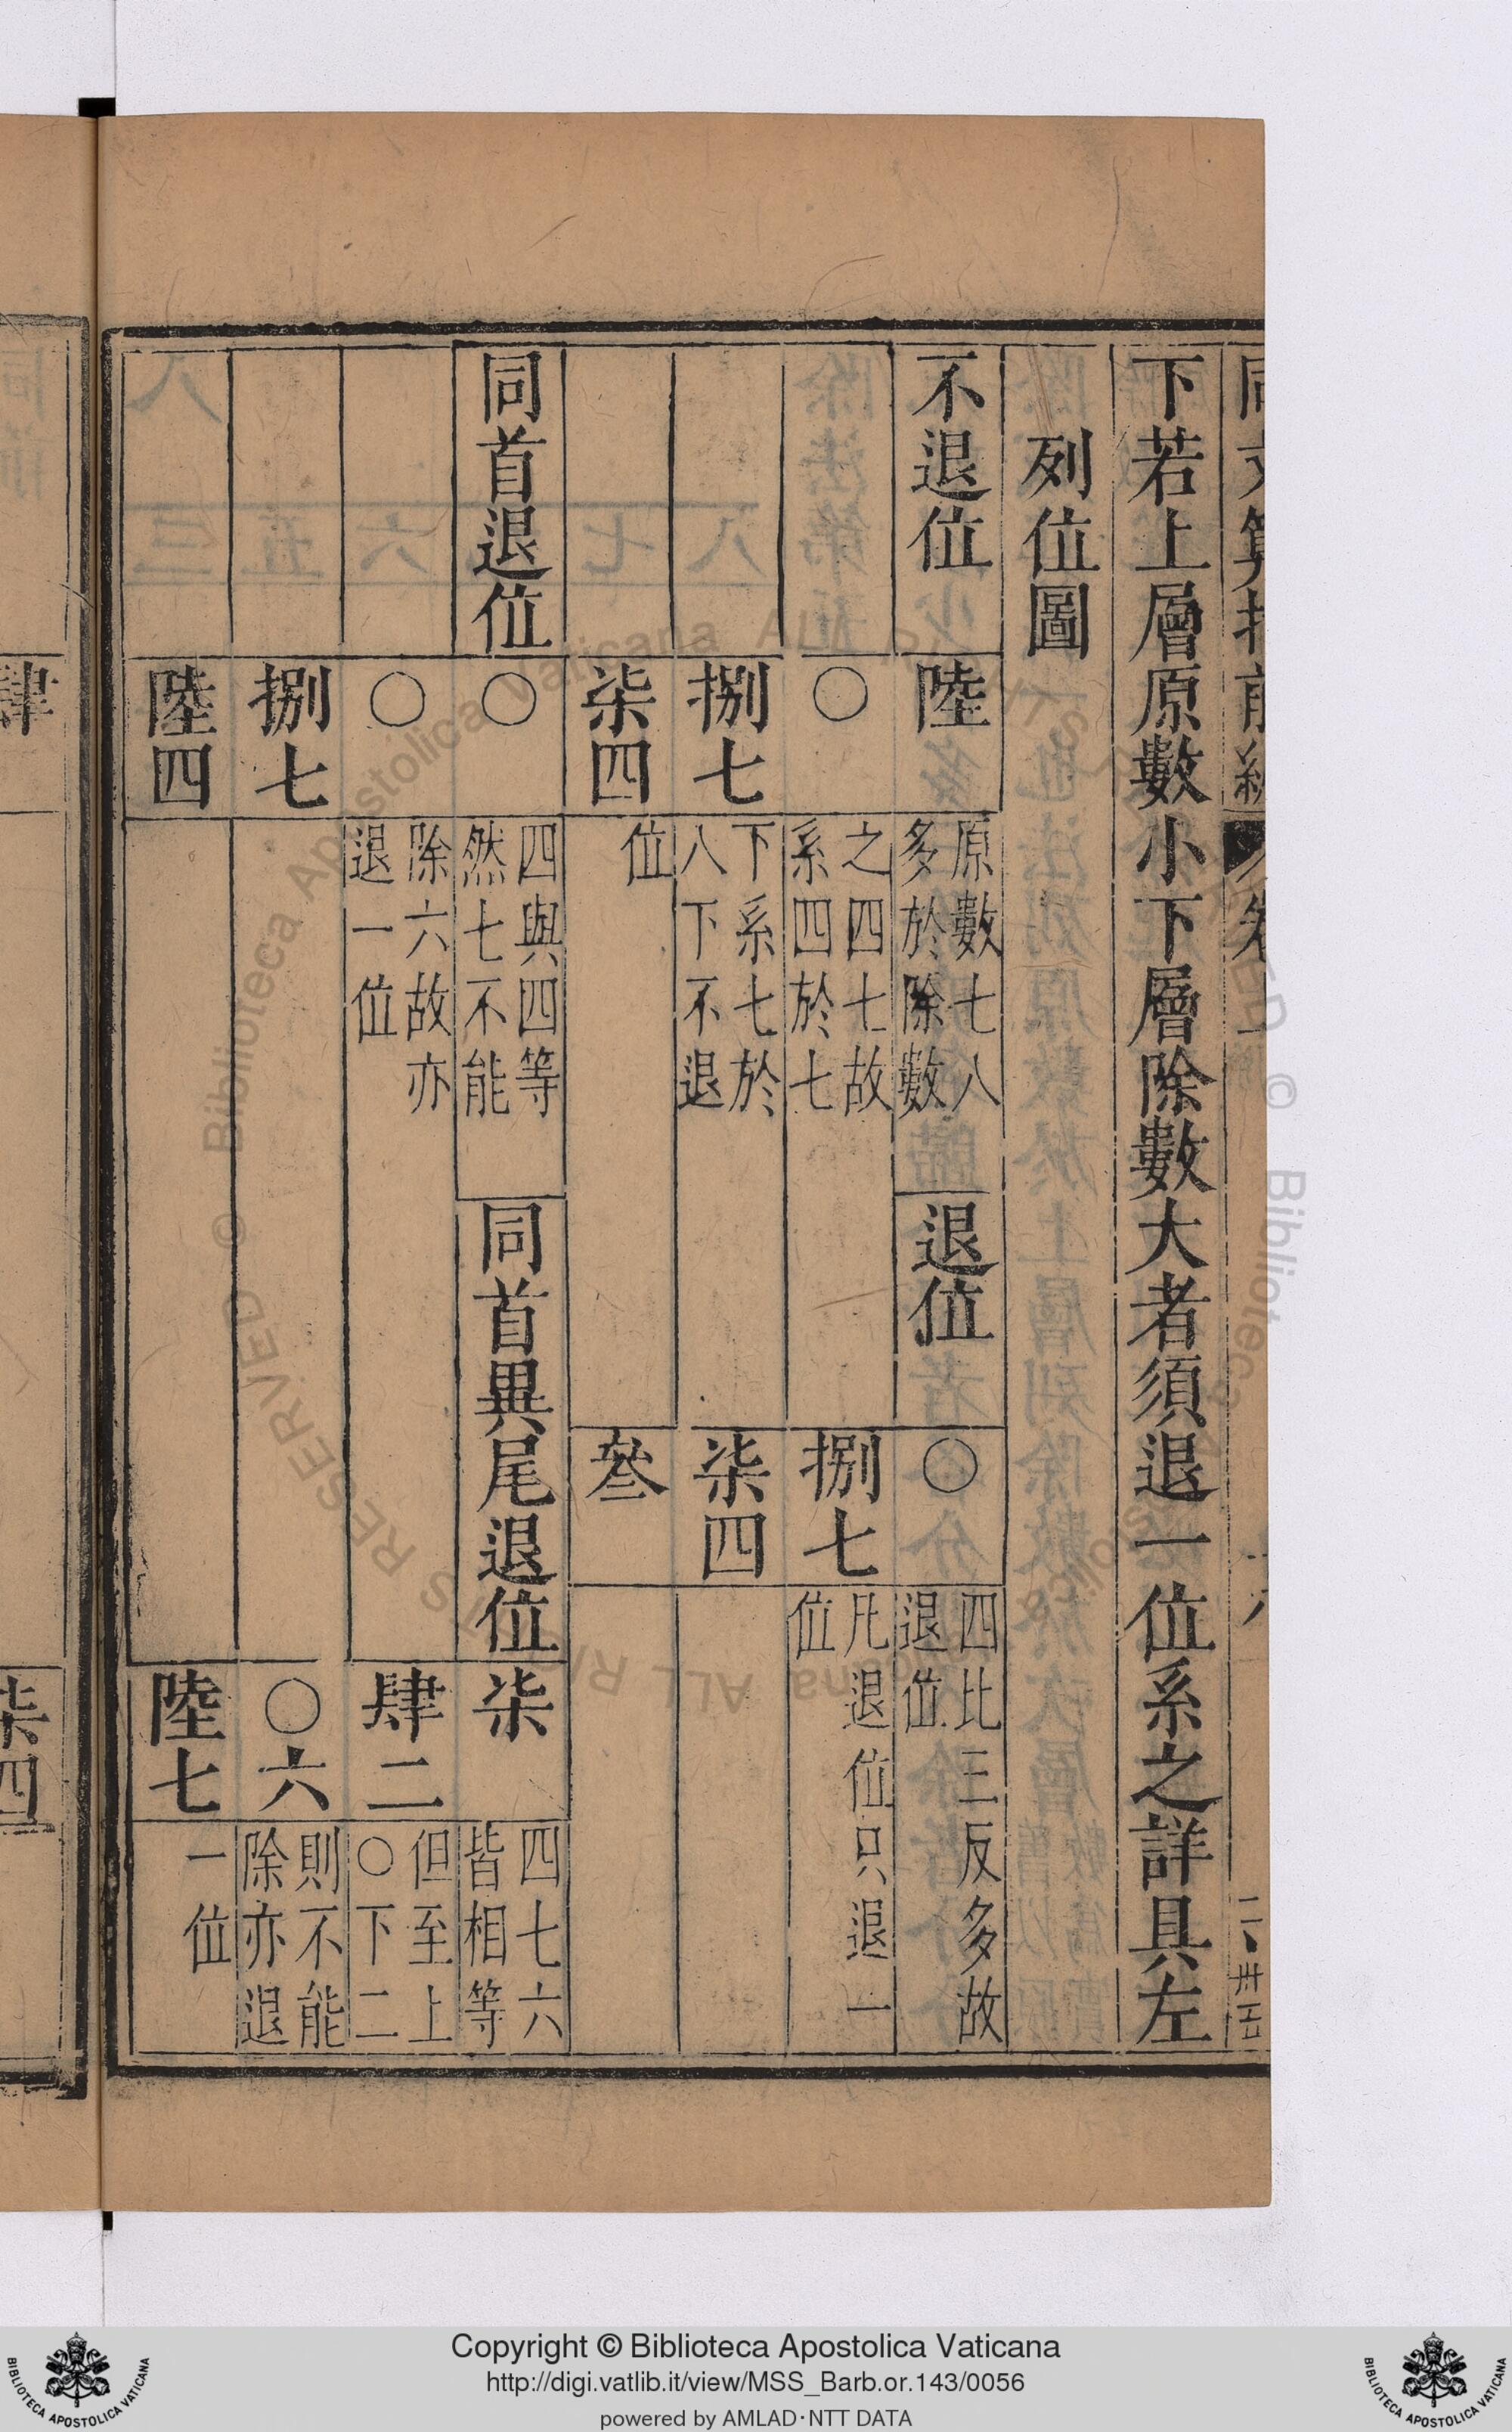 下若上層原數小下層除數大者須退一位系之詳具左
列位圖
不退位
陸
〇
捌七
柒四
原數七八
多於除數
之四七故
系四於七
下系七於
八下不退
位
退位
〇
捌七
柒四
叄
四比三反多故
退位
凡退位只退一
位
同首退位
〇
〇
捌七
陸四
四與四等
然七不能
除六故亦
退一位
同首異尾退位
柒
肆二
〇六
陸七
四七六
皆相等
但至上
〇下二
則不能
除亦退
一位
肆
柒四
Copyright © Biblioteca Apostolica Vaticana
http://digi.vatlib.it/view/MSS_Barb.or.143/0056
powered by AMLAD·NTT DATA
BIBLIOTECA APOSTOLICA VATICANA
BIBLIOTECA APOSTOLICA VATICANA